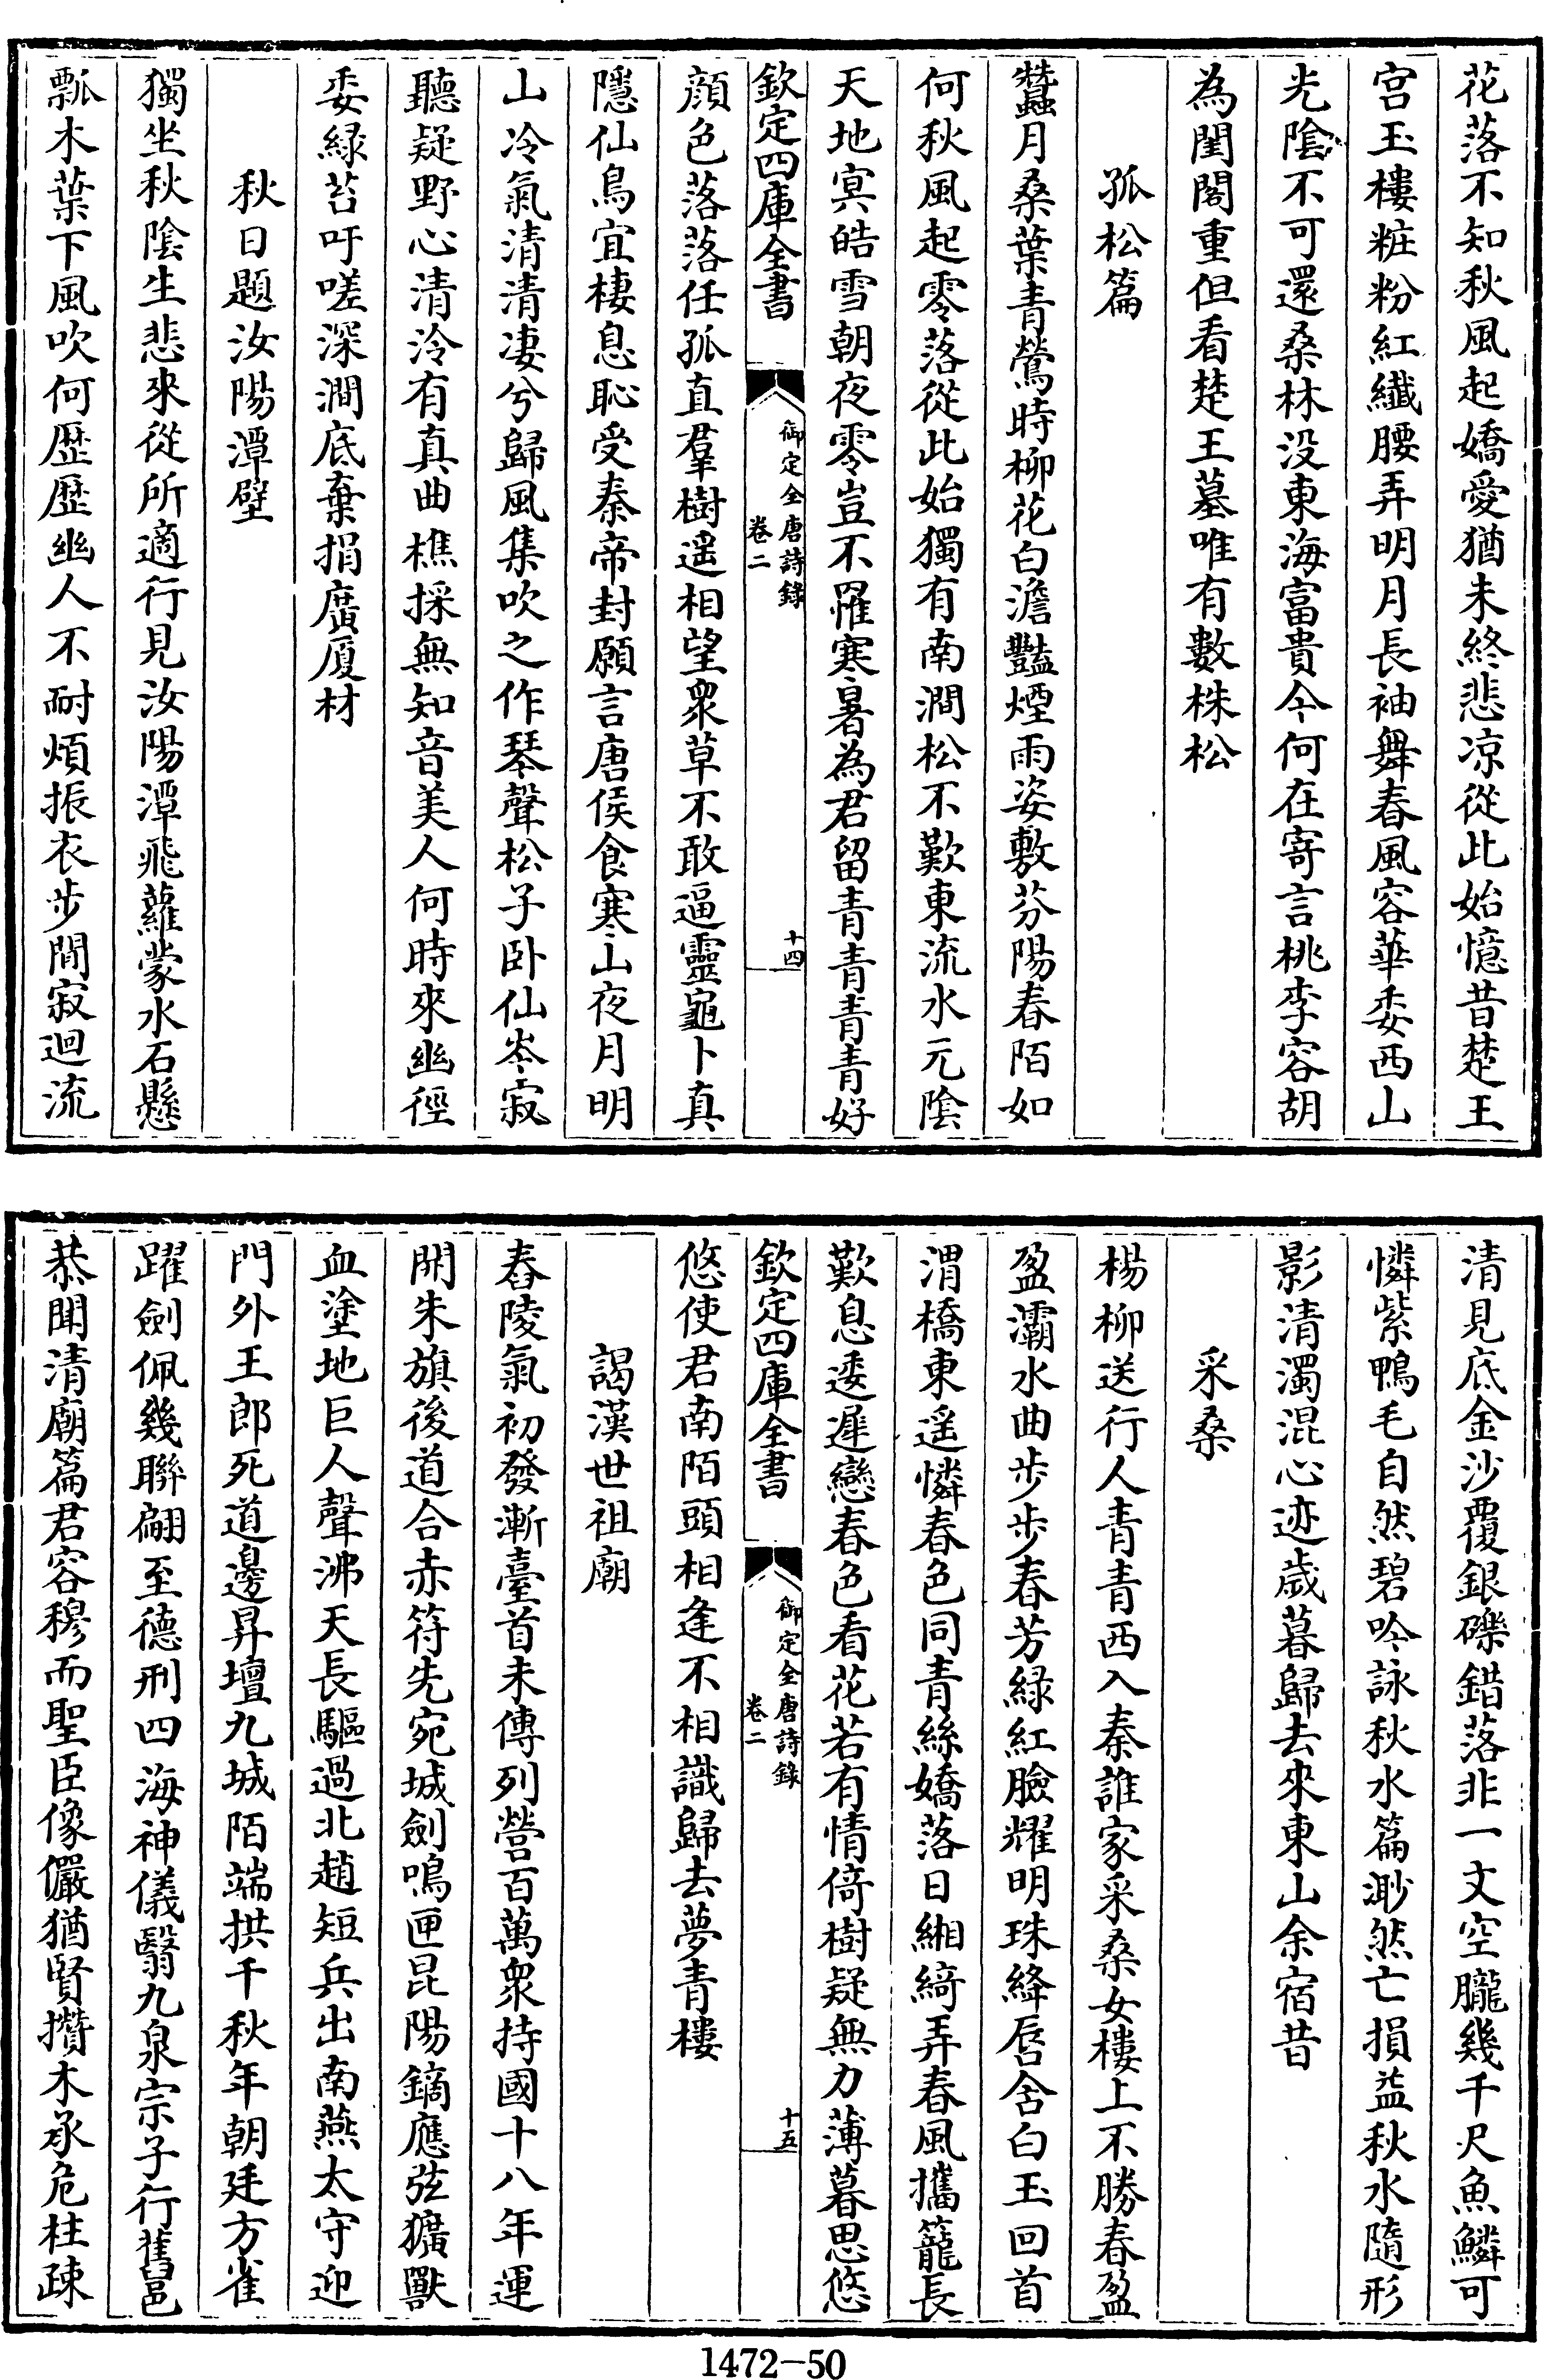 花落不知秋風起嬌愛猶未終悲凉從此始憶昔楚王
宫玉樓粧粉紅纖腰弄明月長袖舞春風容華委西山
光隂不可還桑林没東海富貴今何在寄言桃李容胡
為閨閣重但看楚王墓唯有數株松
孤松篇
蠶月桑葉青鶯時柳花白澹豔煙雨姿敷芬陽春陌如
何秋風起零落從此始獨有南澗松不歎東流水元隂
天地㝠皓雪朝夜零豈不罹寒暑為君留青青青青好
欽定四庫全書
御定全唐詩録
卷二
十四
顔色落落任孤直羣樹遥相望衆草不敢逼靈龜卜真
隱仙鳥宜棲息恥受秦帝封願言唐侯食寒山夜月明
山冷氣清清凄兮歸風集吹之作琴聲松子卧仙岑寂
聽疑野心清泠有真曲樵採無知音美人何時來幽徑
委綠苔吁嗟深澗底棄捐廣厦材
秋日題汝陽潭壁
獨坐秋隂生悲來從所適行見汝陽潭飛蘿蒙水石懸
瓢木葉下風吹何歴歴幽人不耐煩振衣步閒寂迴流
清見底金沙覆銀礫錯落非一文空朧幾千尺魚鱗可
憐紫鴨毛自然碧吟詠秋水篇渺然亡損益秋水隨形
影清濁混心迹歲暮歸去來東山余宿昔
采桑
楊柳送行人青青西入秦誰家采桑女樓上不勝春盈
盈灞水曲步步春芳緑紅臉耀明珠絳唇含白玉回首
渭橋東遥憐春色同青絲嬌落日緗綺弄春風攜籠長
歎息逶遲戀春色看花若有情倚樹疑無力薄暮思悠
欽定四庫全書
御定全唐詩錄
卷二
十五
悠使君南陌頭相逢不相識歸去夢青樓
謁漢世祖廟
舂陵氣初發漸臺首未傳列營百萬衆持國十八年運
開朱旗後道合赤符先宛城劍鳴匣昆陽鏑應弦獷獸
血塗地巨人聲沸天長驅過北趙短兵出南燕太守迎
門外王郎死道邊昇壇九城陌端拱千秋年朝廷方雀
躍劍佩幾聯翩至德刑四海神儀翳九泉宗子行舊邑
恭聞清廟篇君容穆而聖臣像儼猶賢攢木承危柱疎
1472-50